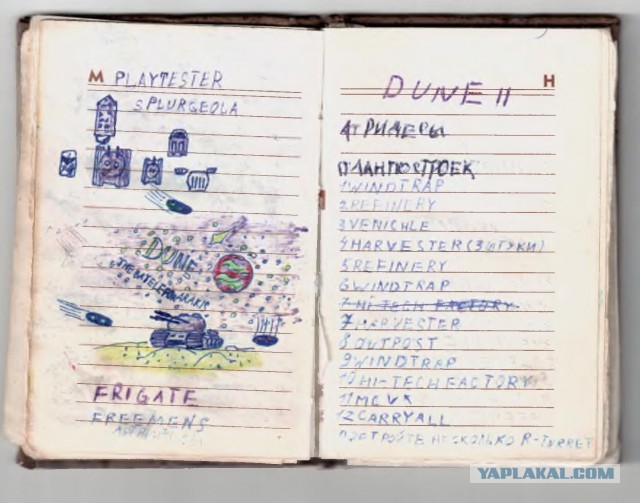 М PLAYTESTER
SPLURGEOLA
DUNE
THE BATELFORARAKIS
FRIGATE
FREEMENS
Н
DUNE II
АТРИДЕРЫ
ПЛАН ПОСТРОЕК
1 WINDTRAP
2 REFINERY
3 VENICHLE
4 HARVESTER (3 ШТУКИ)
5 REFINERY
6 WINDTRAP
7 HI TECH FACTORY
7 HARVESTER
8 OUTPOST
9 WINDTRAP
10 HI-TECH FACTORY
11 MCV
12 CARRYALL
ПОСТРОЙТЕ НЕСКОЛЬКО R-TURRET
YAPLAKAL.COM